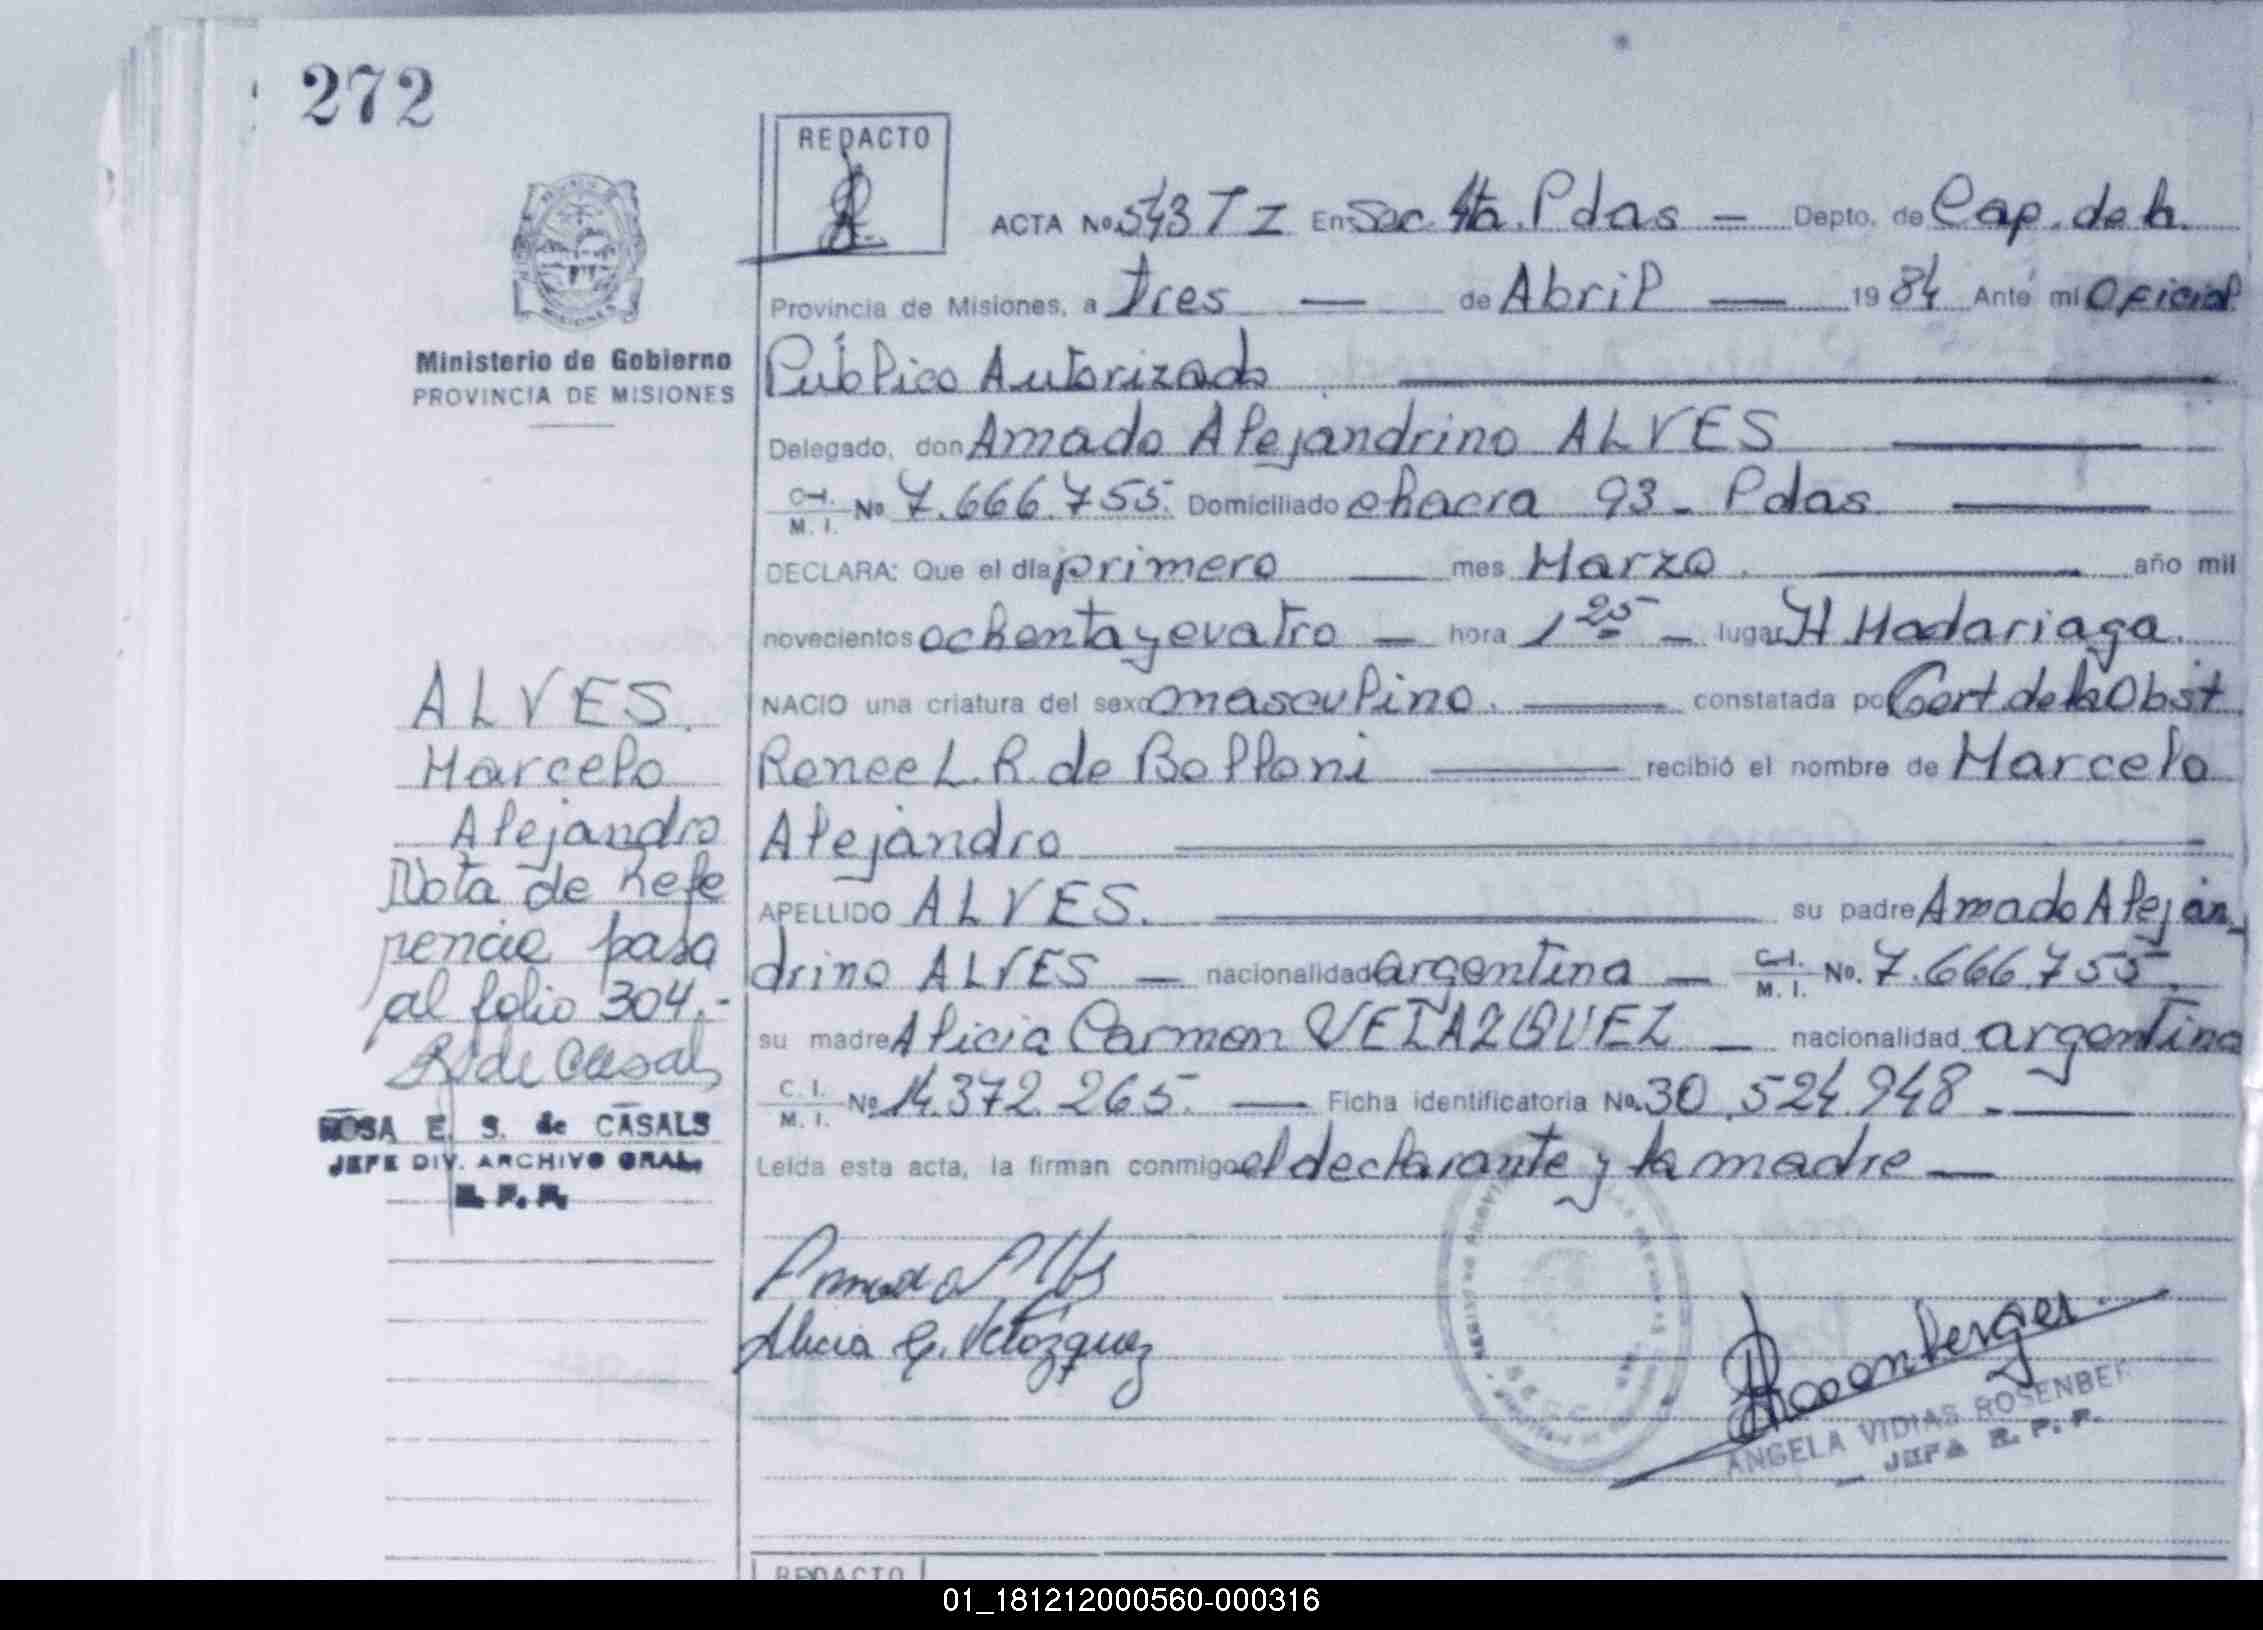 272
REDACTO
ACTA Nº 543 T I En Sec. 4ta. Pdas — Depto. de Cap. de la
Provincia de Misiones, a tres — de Abril — 1984 Ante mi Oficial
Público Autorizado
Ministerio de Gobierno
PROVINCIA DE MISIONES
Delegado, don Amado Alejandrino ALVES
C.I.
M. I. Nº 7.666.755. Domiciliado chacra 93 - Pdas
DECLARA: Que el día primero — mes Marzo. — año mil
novecientos ochenta y cuatro — hora 1 25 — lugar H Madariaga.
NACIO una criatura del sexo masculino. — constatada por Cert. de la Obst.
Renee L. R. de Bolloni — recibió el nombre de Marcelo
Alejandro
APELLIDO ALVES. — su padre Amado Alejan
drino ALVES — nacionalidad argentina — C.I.
M. I. No. 7.666.755.
su madre Alicia Carmen VELAZQUEZ — nacionalidad argentina
C. I.
M. I. Nº 14.372.265. — Ficha identificatoria No. 30.524.948. —
Leída esta acta, la firman conmigo el declarante y la madre —
ALVES.
Marcelo
Alejandro
Nota de Refe
rencia pasa
al folio 304.-
R. de Casals
ROSA E. S. de CASALS
JEFE DIV. ARCHIVO GRAL.
R. P. P.
Amado Alves
Alicia C. Velázquez
Rosenberger
ANGELA VIDIAS ROSENBER
JEFA R. P. P.
REDACTO
01_181212000560-000316